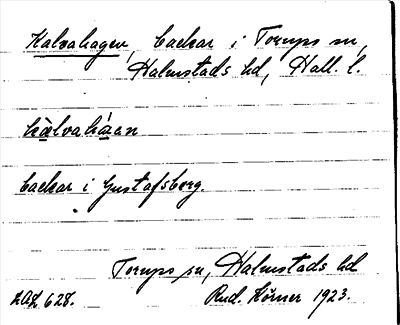 Kalvahagen, backar i Torups sn,
Halmstads hd, Hall. l.
kàlvahá̱an
backar i Gustafsberg.
Torups sn, Halmstads hd
LAL 628. Rud. Hörner 1923.